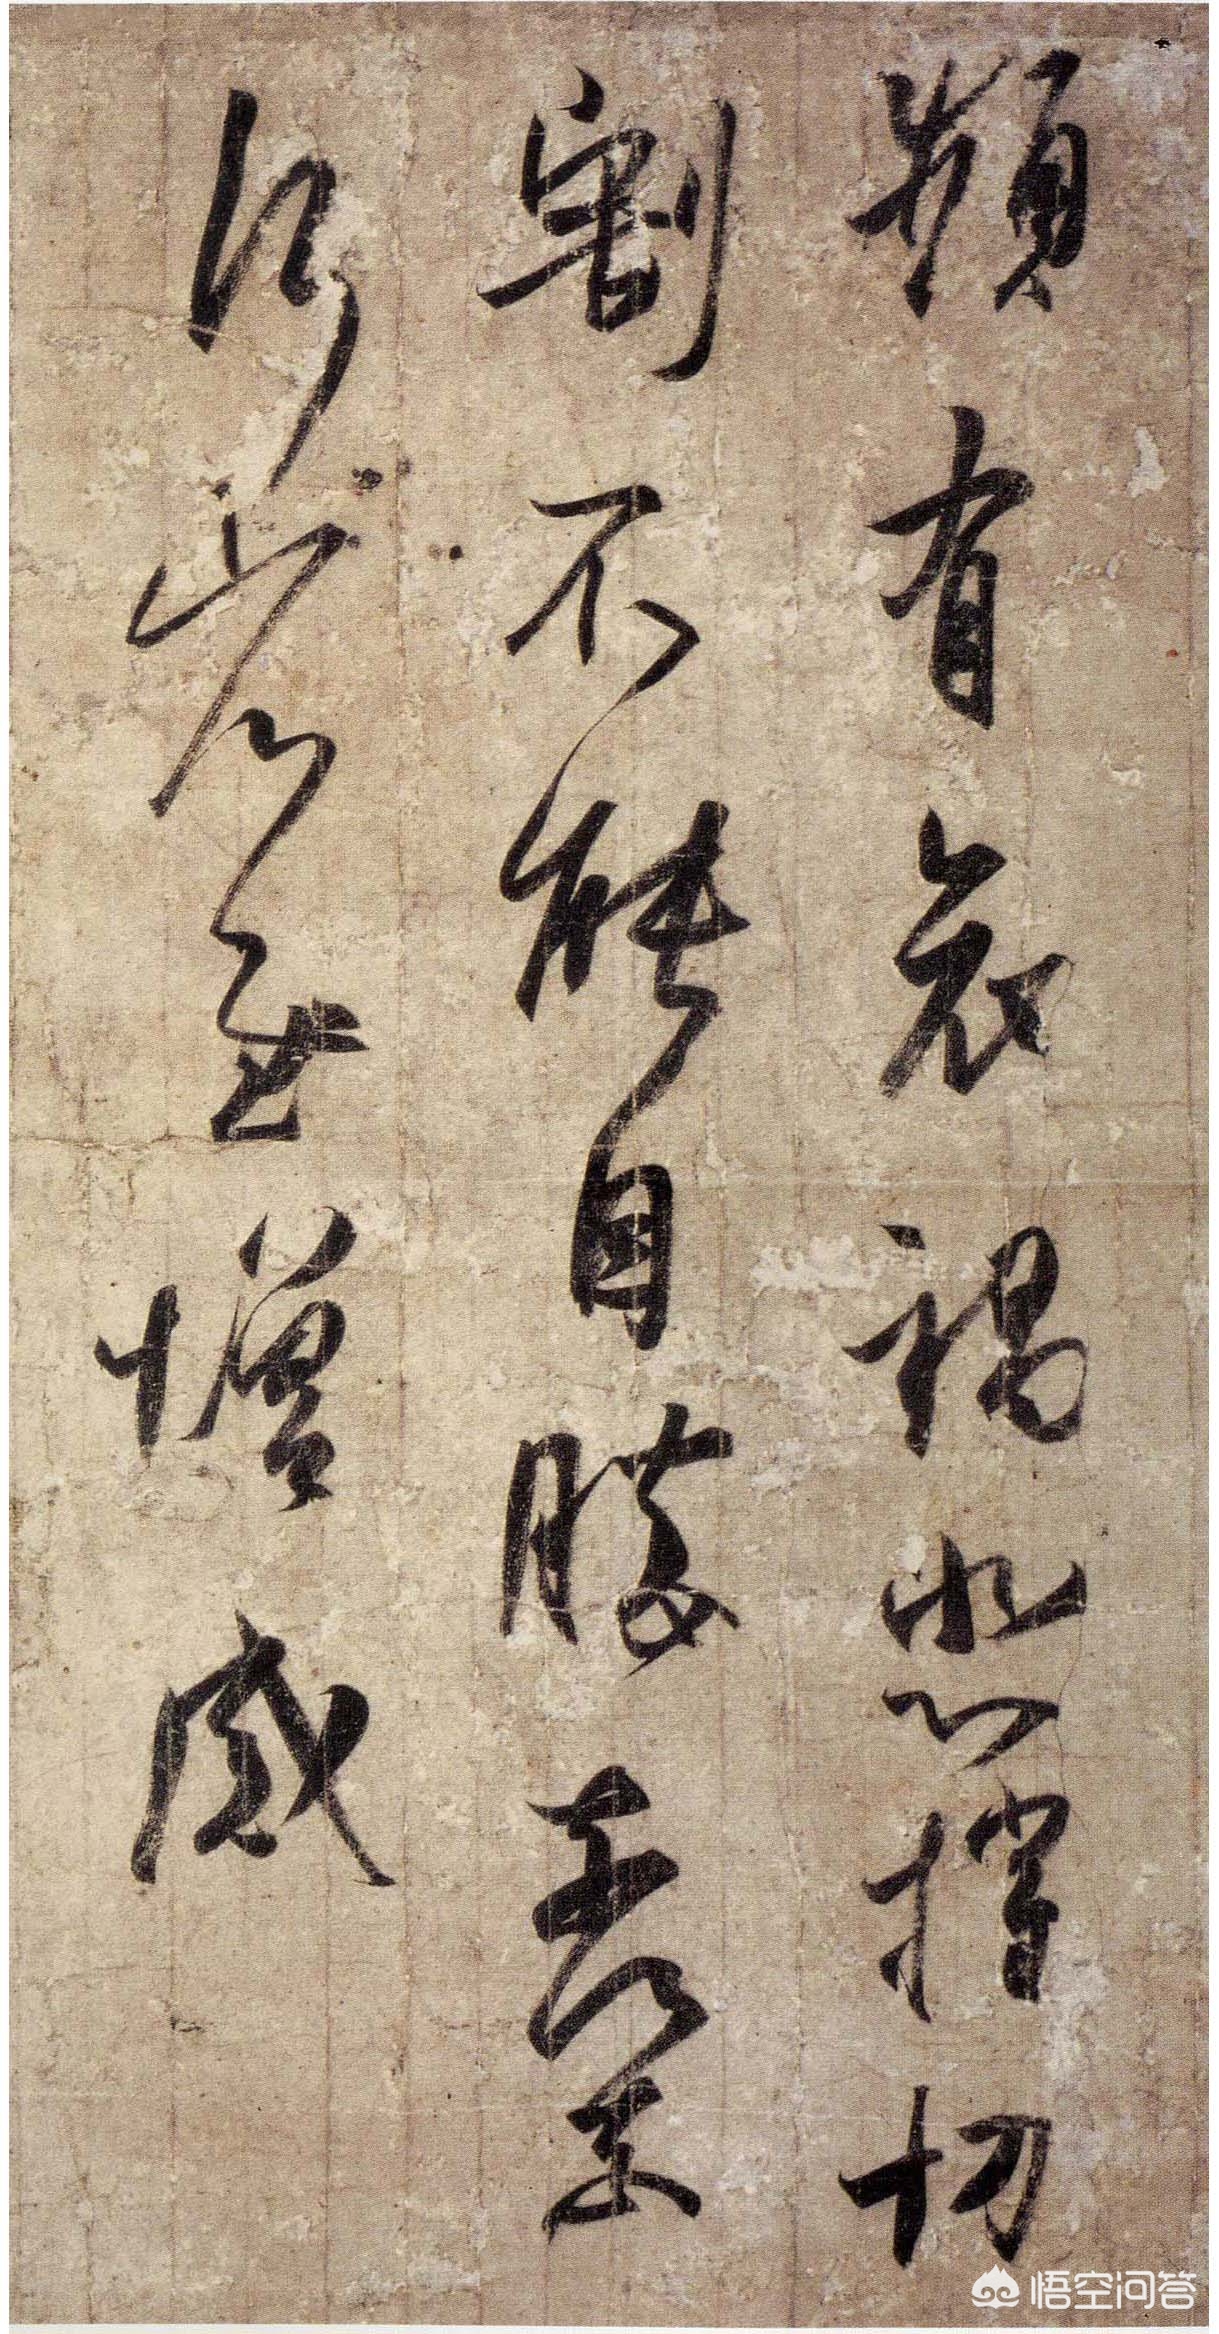 頻有哀禍悲摧切
割不能自勝奈何
奈何省慰增感
悟空问答